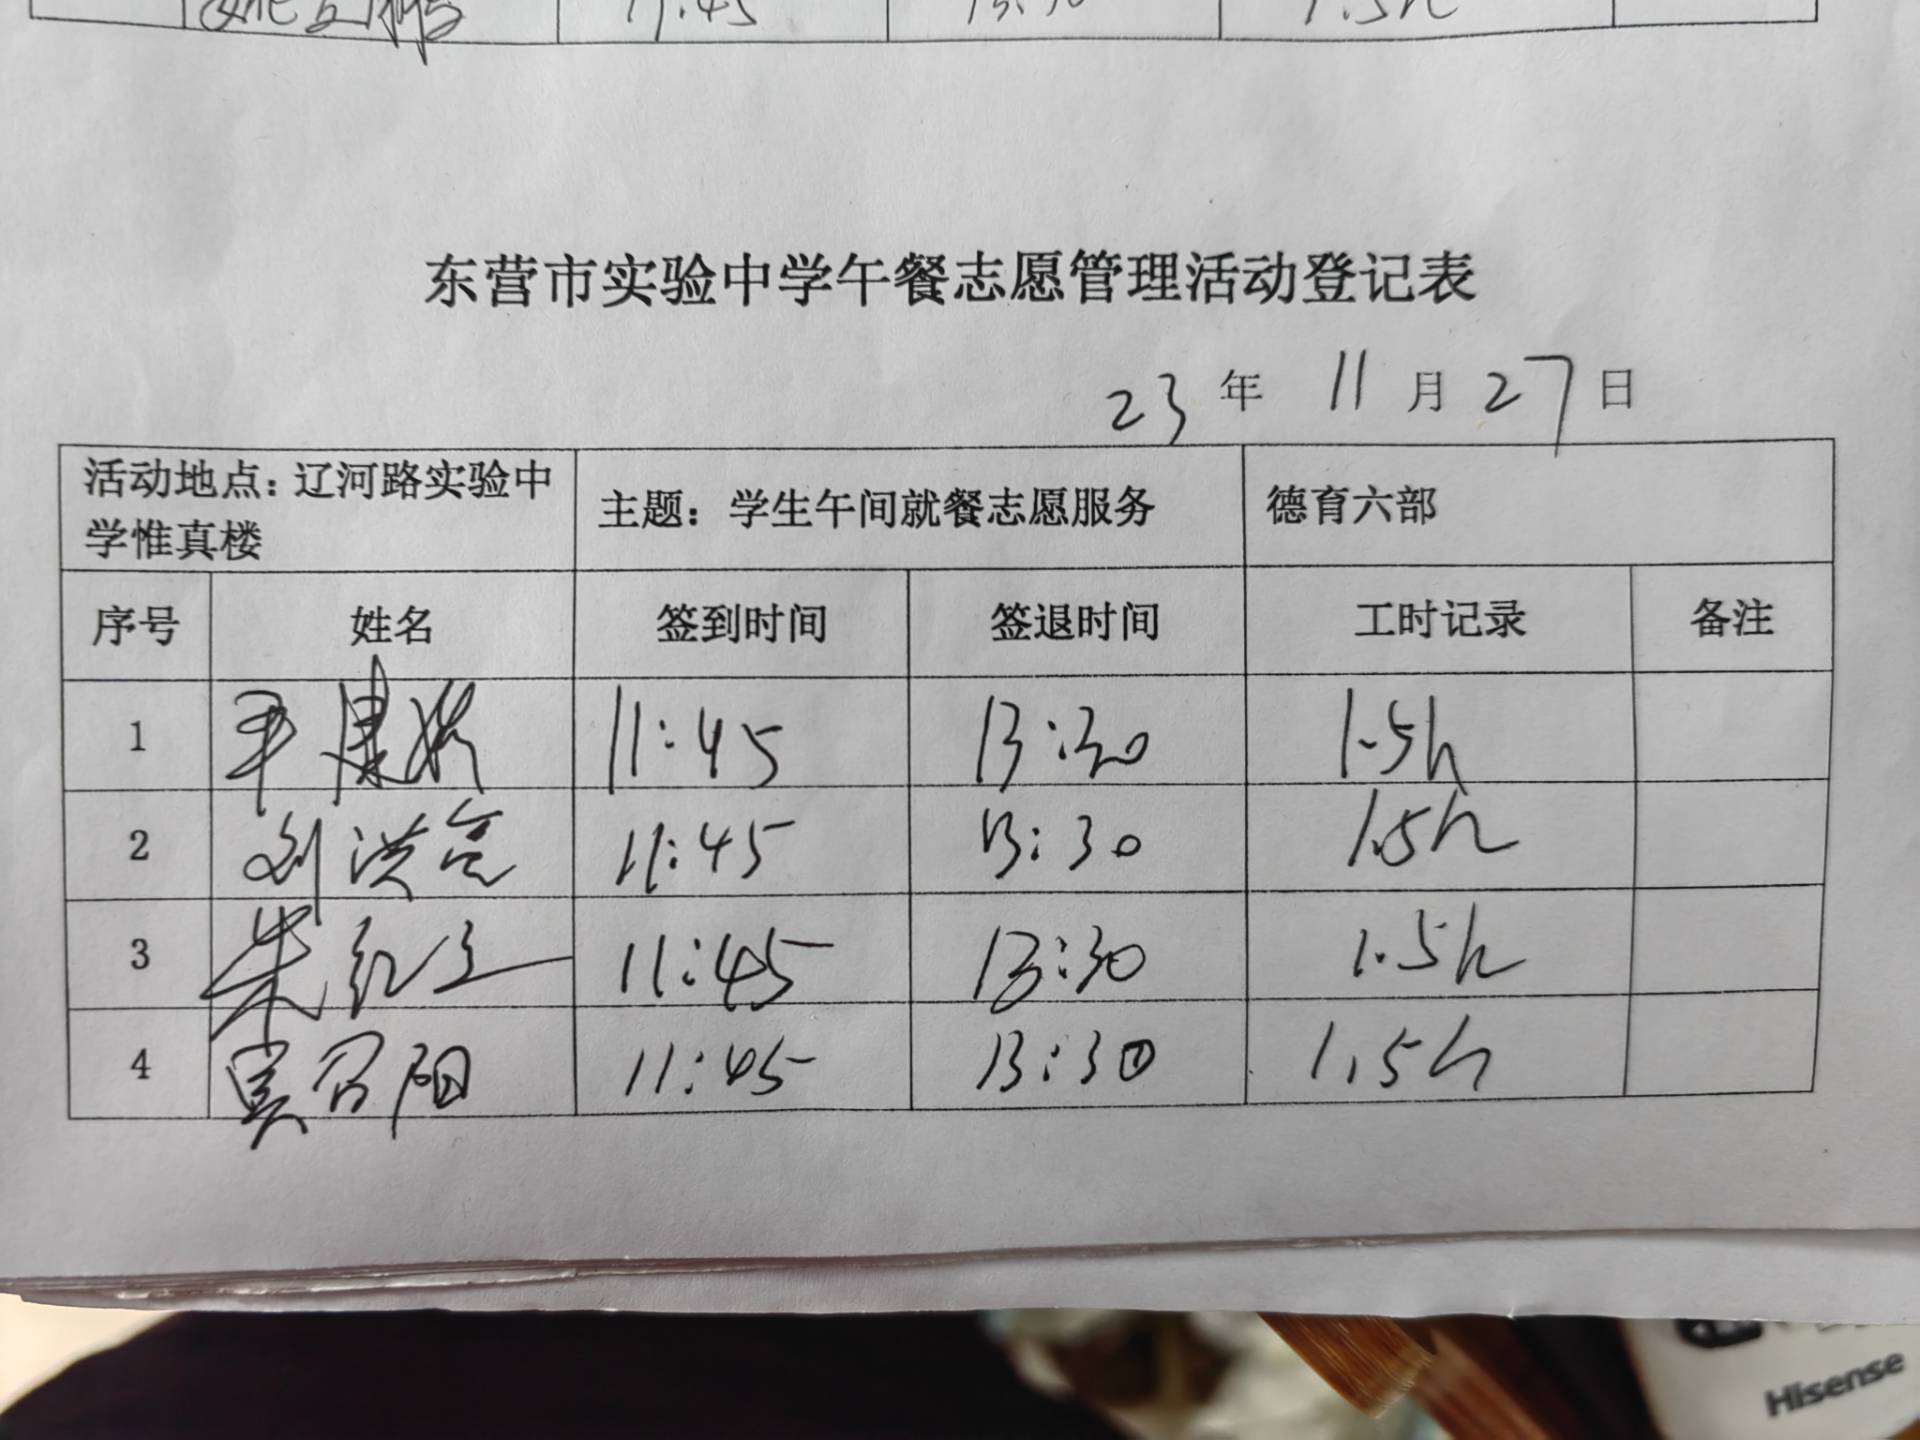 11:45 13:30 1.5h
东营市实验中学午餐志愿管理活动登记表
23 年 11 月 27 日
活动地点：辽河路实验中
学惟真楼
主题：学生午间就餐志愿服务
德育六部
序号 姓名 签到时间 签退时间 工时记录 备注
1 11:45 13:30 1.5h
2 刘洪亮 11:45 13:30 1.5h
3 朱红 11:45 13:30 1.5h
4 吴召阳 11:45 13:30 1.5h
Hisense